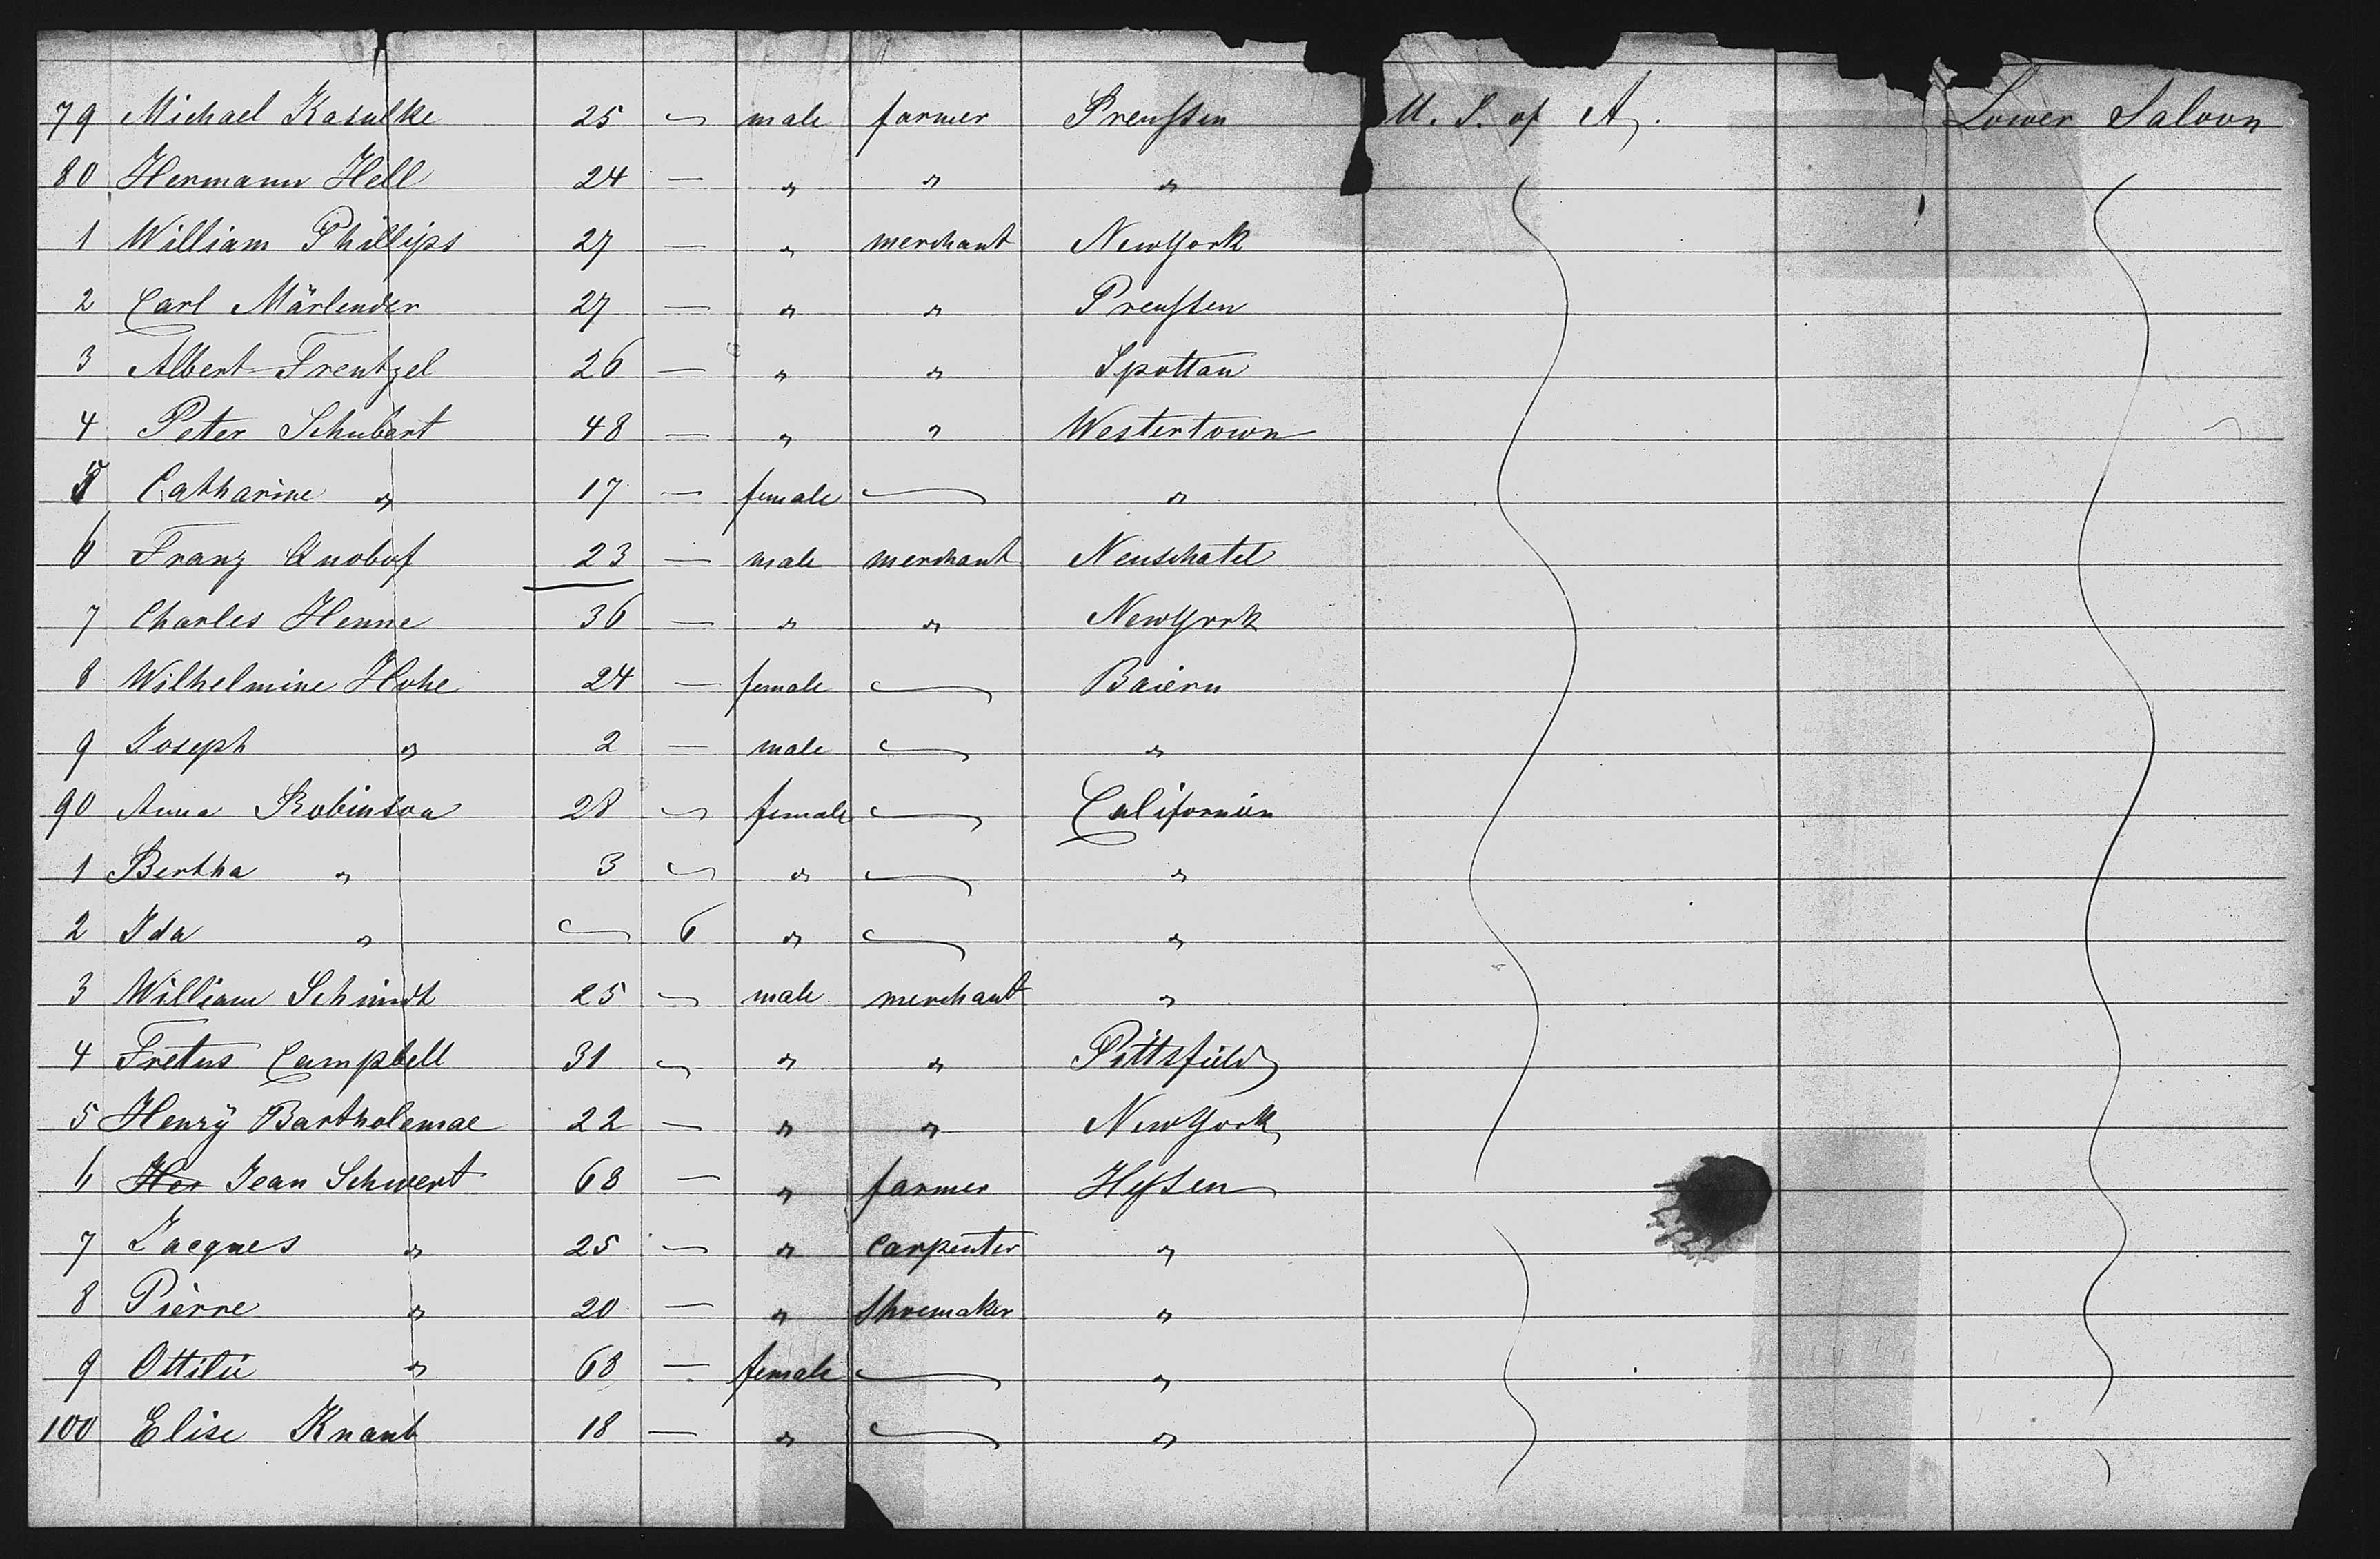 79 Michael Kasulke 25 — male farmer Preußen U. S. of A. Lower Saloon
80 Hermann Hell 24 — " " "
1 William Phillips 27 — " merchant New York
2 Carl Märlender 27 — " " Preußen
3 Albert Frentzel 26 — " " Spottau
4 Peter Schubert 48 — " " Westertown
5 Catharine " 17 — female — "
6 Franz Knobof 23 — male merchant Neuschatel
7 Charles Henne 36 — " " New York
8 Wilhelmine Hohe 24 — female — Baiern
9 Joseph " 2 — male — "
90 Anna Robinson 28 — female — Californien
1 Bertha " 3 — " — "
2 Ida " — 6 " — "
3 William Schmidt 25 — male merchant "
4 Fretus Campbell 31 — " " Pittsfield
5 Henry Bartholemae 22 — " " New York
6 Her Jean Schwert 68 — " farmer Heßen
7 Jacques " 25 — " Carpenter "
8 Pierre " 20 — " Shoemaker "
9 Ottilie " 63 — female — "
100 Elise Knaub 18 — " — "